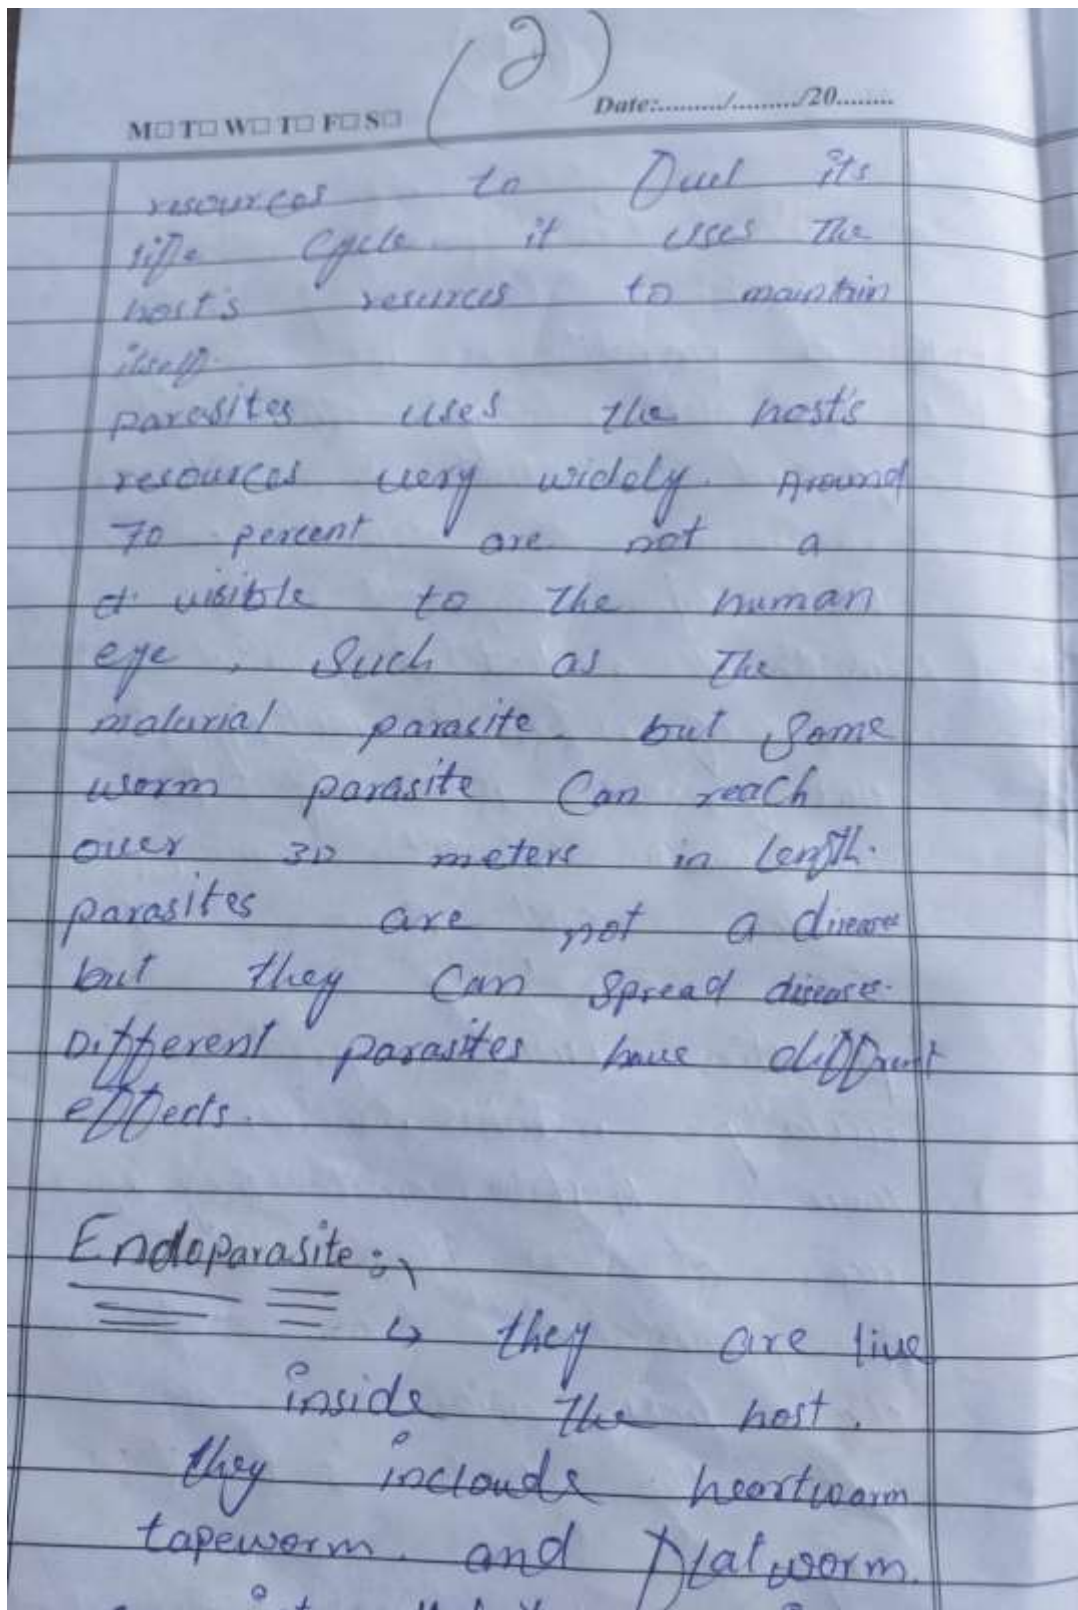 (2)
M□ T□ W□ T□ F□ S□ Date:........./........./20........
resources to fuel its
life cycle. it uses the
host's resurces to maintain
itself.
parasites uses the host's
resources very widely. Around
70 percent are not a
visible to the human
eye, Such as The
malarial parasite. but Some
worm parasite Can reach
over 30 meters in length.
parasites are not a disease
but they Can Spread disease.
Different parasites have different
effects.
Endoparasite:
↳ they are live
inside the host.
they incloude heartworm
tapeworm. and flatworm.